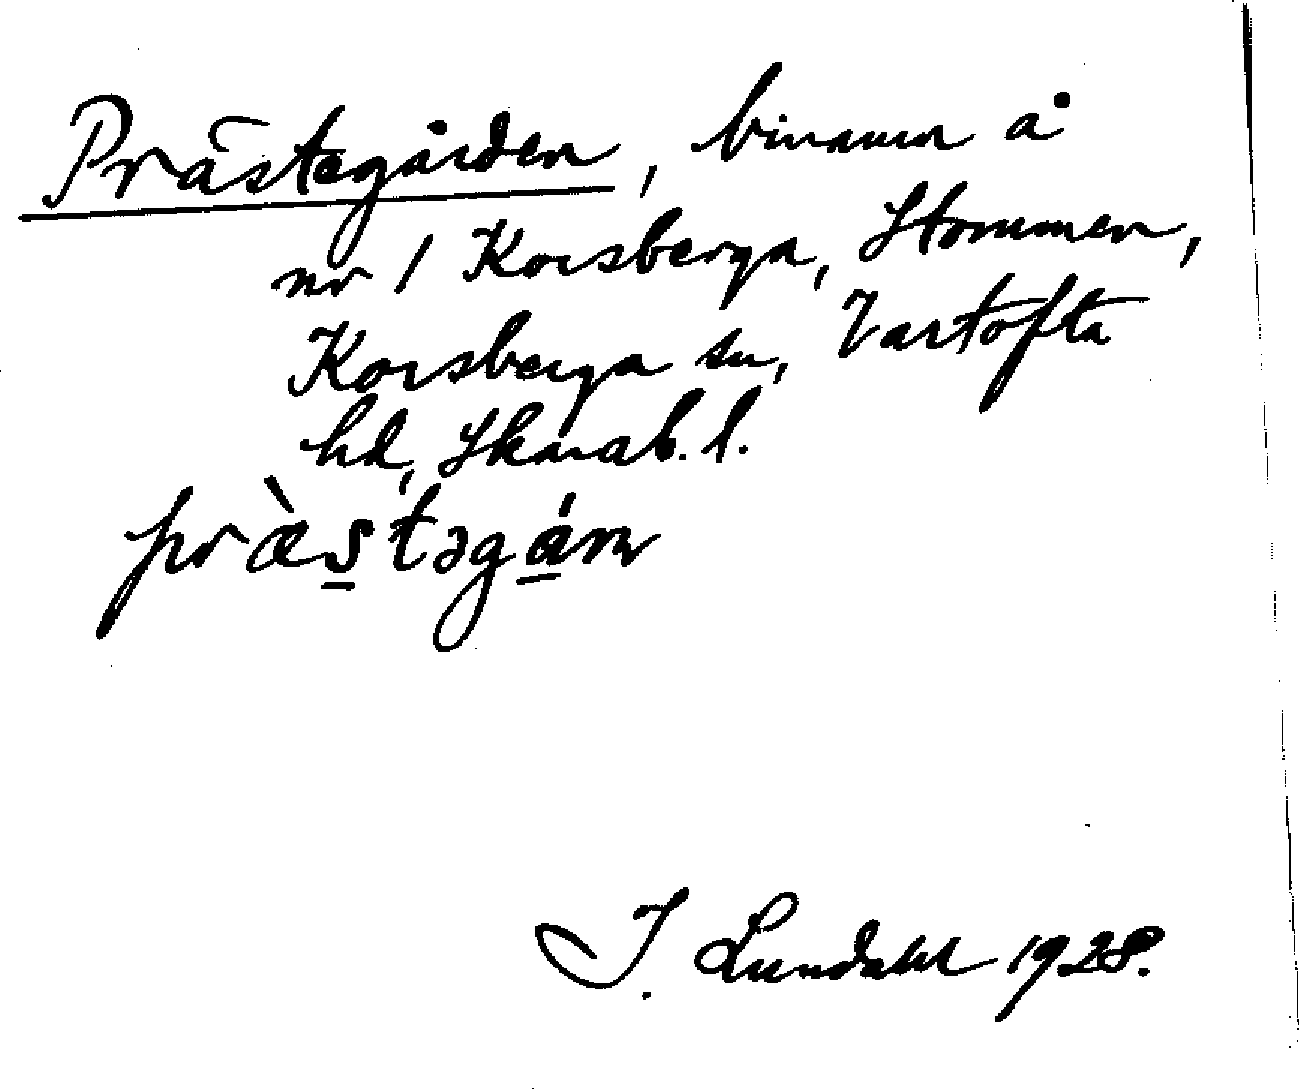 Prästegården, binamn å
nr 1 Korsberga, Stommen,
Korsberga sn, Vartofta
hd, Skarab. l.
præ̀s̲təgá̲ɳ
I. Lundahl 1928.